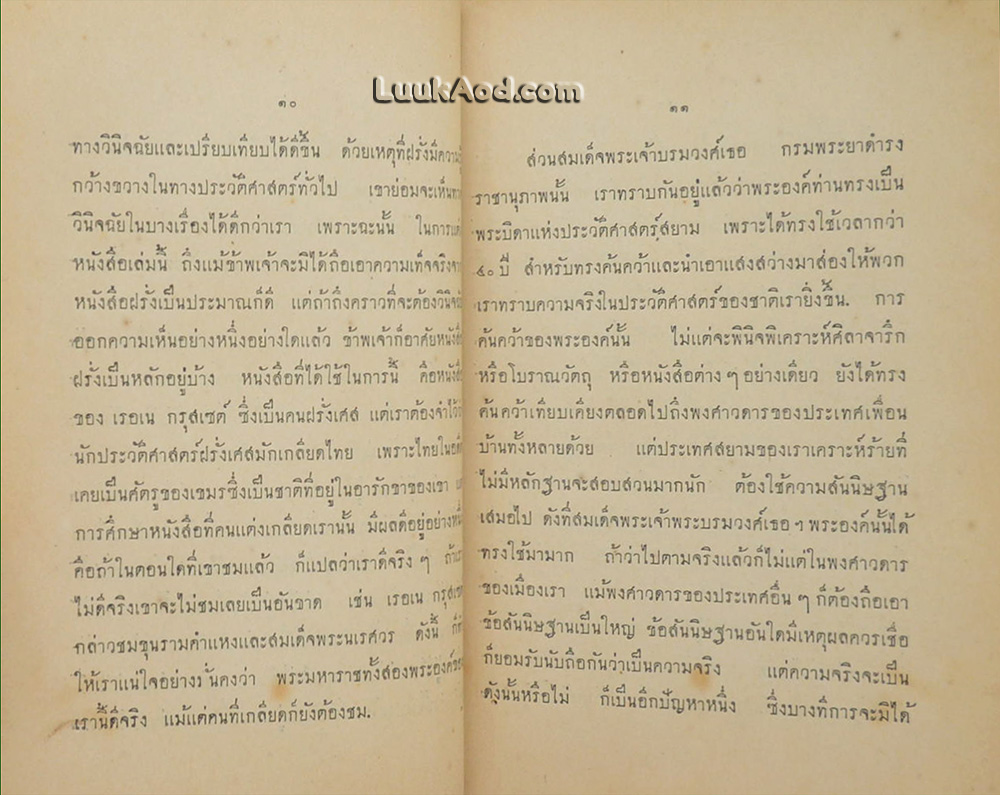 LuukAod.com
๑๐
ทางวินิจฉัยและเปรียบเทียบได้ดีขึ้น ด้วยเหตุที่ฝรั่งมีความรู้
กว้างขวางในทางประวัติศาสตร์ทั่วไป เขาย่อมจะเห็นทาง
วินิจฉัยในบางเรื่องได้ดีกว่าเรา เพราะฉะนั้น ในการแต่ง
หนังสือเล่มนี้ ถึงแม้ข้าพเจ้าจะมิได้ถือเอาความเท็จจริงจาก
หนังสือฝรั่งเป็นประมาณก็ดี แต่ถ้าถึงคราวที่จะต้องวินิจฉัย
ออกความเห็นอย่างหนึ่งอย่างใดแล้ว ข้าพเจ้าก็อาศัยหนังสือ
ฝรั่งเป็นหลักอยู่บ้าง หนังสือที่ได้ใช้ในการนี้ คือหนังสือ
ของ เรอเน กรุสเซต์ ซึ่งเป็นคนฝรั่งเศส แต่เราต้องจำไว้ว่า
นักประวัติศาสตร์ฝรั่งเศสมักเกลียดไทย เพราะไทยในอดีต
เคยเป็นศัตรูของเขมรซึ่งเป็นชาติที่อยู่ในอารักขาของเขา
การศึกษาหนังสือที่คนแต่งเกลียดเรานั้น มีผลดีอยู่อย่างหนึ่ง
คือถ้าในตอนใดที่เขาชมแล้ว ก็แปลว่าเราดีจริง ๆ ถ้าเรา
ไม่ดีจริงเขาจะไม่ชมเลยเป็นอันขาด เช่น เรอเน กรุสเซต์
กล่าวชมขุนรามคำแหงและสมเด็จพระนเรศวร ดังนี้
ให้เราแน่ใจอย่างมั่นคงว่า พระมหาราชทั้งสองพระองค์ของ
เรานี้ดีจริง แม้แต่คนที่เกลียดก็ยังต้องชม.
๑๑
ส่วนสมเด็จพระเจ้าบรมวงศ์เธอ กรมพระยาดำรง
ราชานุภาพนั้น เราทราบกันอยู่แล้วว่าพระองค์ท่านทรงเป็น
พระบิดาแห่งประวัติศาสตร์สยาม เพราะได้ทรงใช้เวลากว่า
๔๐ ปี สำหรับทรงค้นคว้าและนำเอาแสงสว่างมาส่องให้พวก
เราทราบความจริงในประวัติศาสตร์ของชาติเรายิ่งขึ้น. การ
ค้นคว้าของพระองค์นั้น ไม่แต่จะพินิจพิเคราะห์ศิลาจารึก
หรือโบราณวัตถุ หรือหนังสือต่าง ๆ อย่างเดียว ยังได้ทรง
ค้นคว้าเทียบเคียงตลอดไปถึงพงศาวดารของประเทศเพื่อน
บ้านทั้งหลายด้วย แต่ประเทศสยามของเราเคราะห์ร้ายที่
ไม่มีหลักฐานจะสอบสวนมากนัก ต้องใช้ความสันนิษฐาน
เสมอไป ดังที่สมเด็จพระเจ้าพระบรมวงศ์เธอ ฯ พระองค์นั้นได้
ทรงใช้มามาก ถ้าว่าไปตามจริงแล้วก็ไม่แต่ในพงศาวดาร
ของเมืองเรา แม้พงศาวดารของประเทศอื่น ๆ ก็ต้องถือเอา
ข้อสันนิษฐานเป็นใหญ่ ข้อสันนิษฐานอันใดมีเหตุผลควรเชื่อ
ก็ยอมรับนับถือกันว่าเป็นความจริง แต่ความจริงจะเป็น
ดังนั้นหรือไม่ ก็เป็นอีกปัญหาหนึ่ง ซึ่งบางทีการจะมิได้